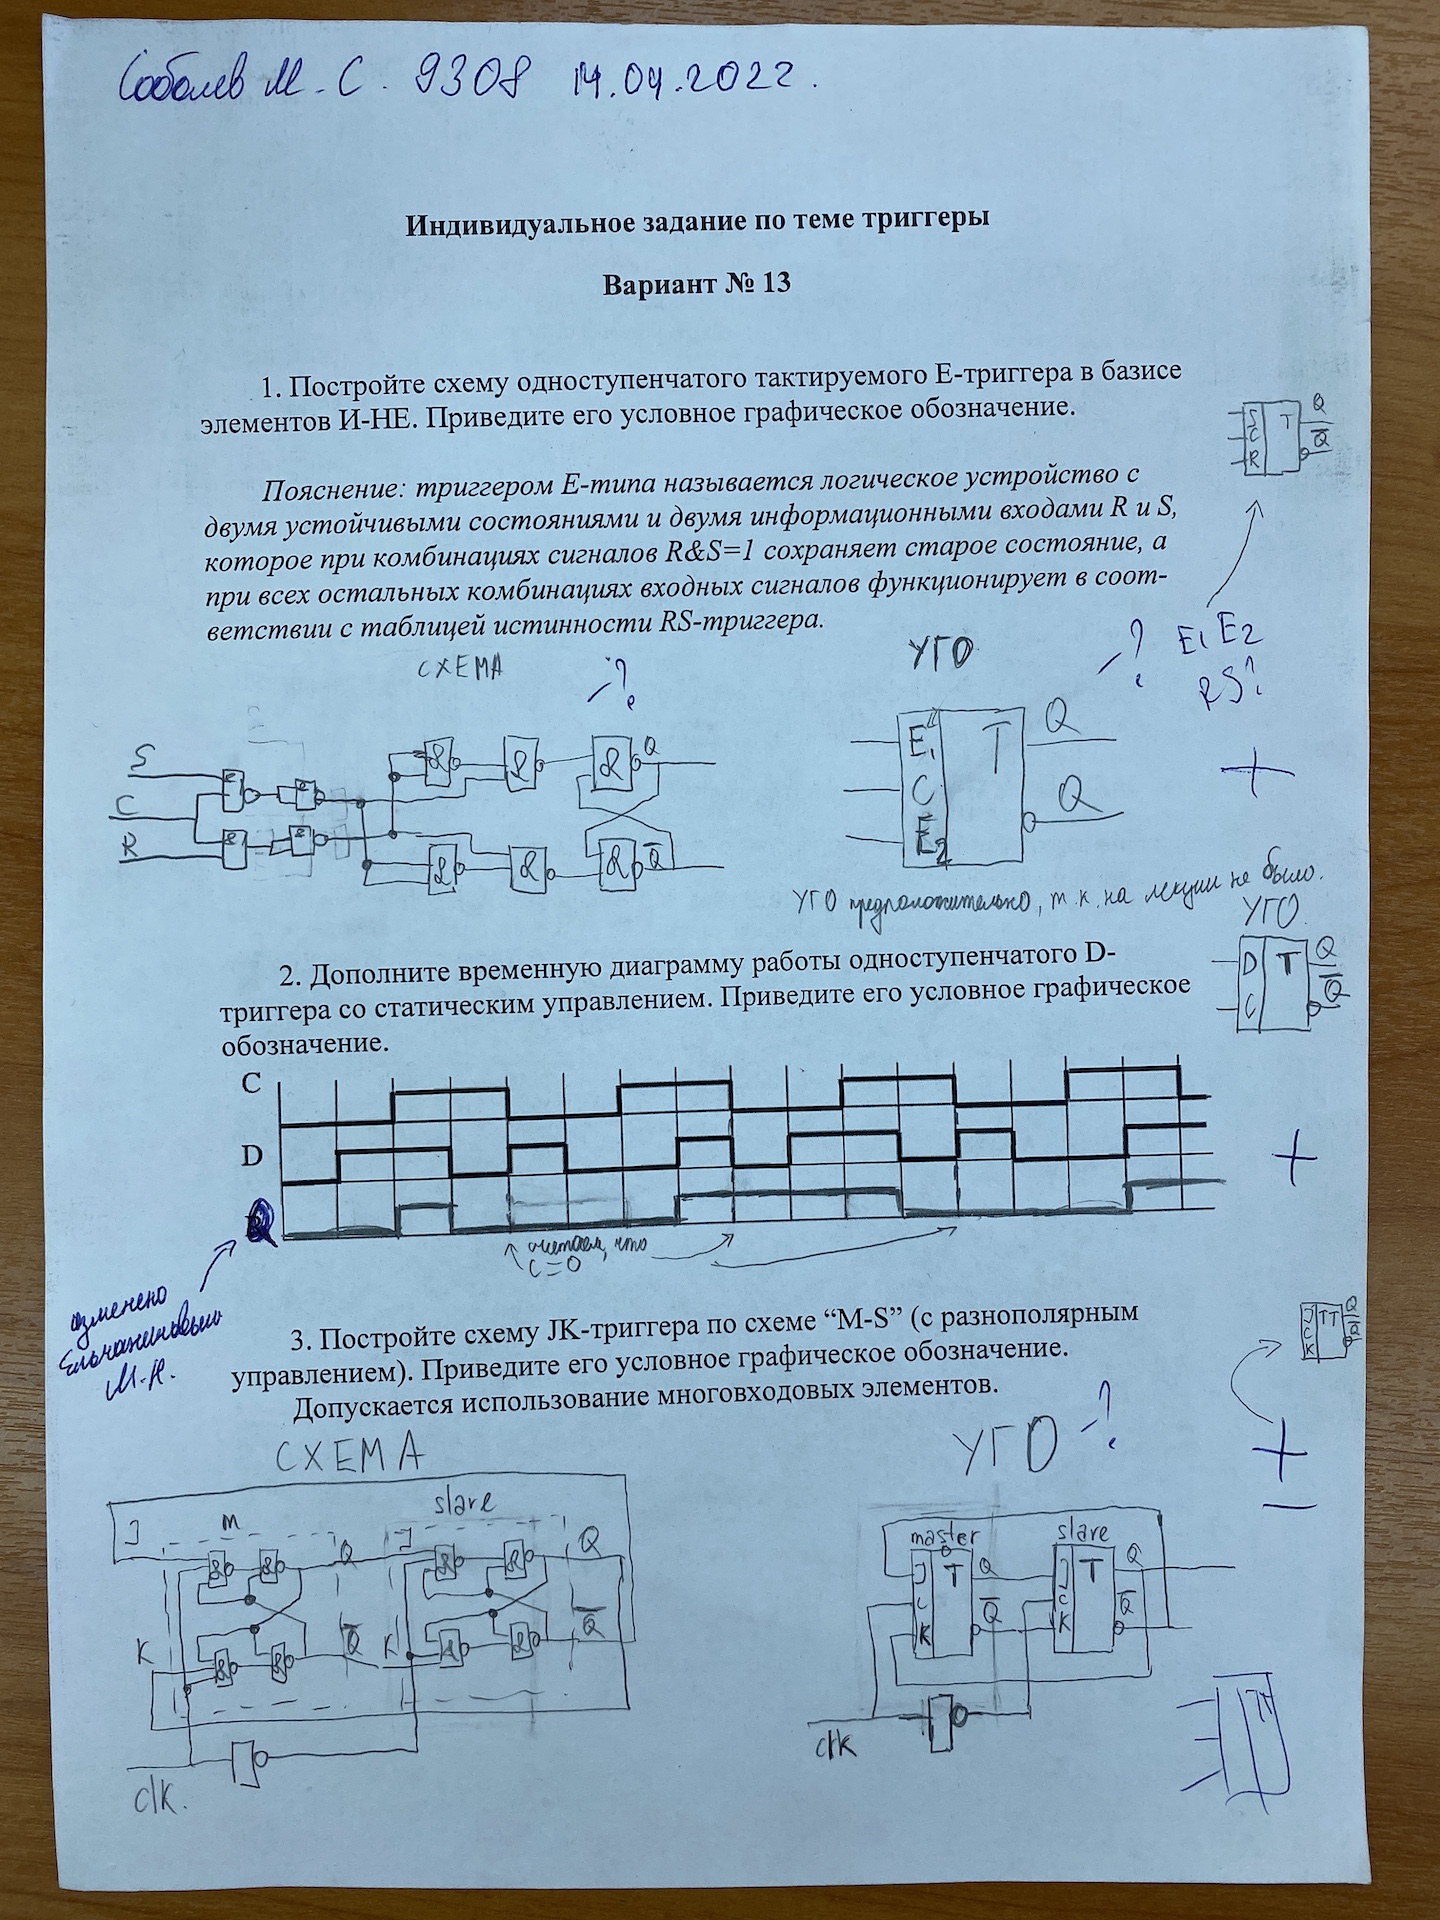 Соболев М. С. 9308 14.04.2022.
Индивидуальное задание по теме триггеры
Вариант № 13
1. Постройте схему одноступенчатого тактируемого Е-триггера в базисе
элементов И-НЕ. Приведите его условное графическое обозначение.
S T Q
C Q̅
R
Пояснение: триггером Е-типа называется логическое устройство с
двумя устойчивыми состояниями и двумя информационными входами R и S,
которое при комбинациях сигналов R&S=1 сохраняет старое состояние, а
при всех остальных комбинациях входных сигналов функционирует в соот-
ветствии с таблицей истинности RS-триггера.
E1 E2
RS?
СХЕМА -? УГО -?
S & & & & & Q
C
R & & & & & Q̅
E1 T Q
C
E2 Q
+
УГО предположительно, т.к. на лекции не было.
УГО
D T Q
C Q̅
2. Дополните временную диаграмму работы одноступенчатого D-
триггера со статическим управлением. Приведите его условное графическое
обозначение.
C
D
+
Q
считаем, что
C=0
изменено
М.Н.
3. Постройте схему JK-триггера по схеме “M-S” (с разнополярным
управлением). Приведите его условное графическое обозначение.
Допускается использование многовходовых элементов.
J TT Q
C Q̅
K
СХЕМА УГО -?
+
-
J M slave
& & Q J & & Q
K & & Q̅ K & & Q̅
clk.
master slave
J T Q J T Q
C Q̅ C Q̅
K K
clk
T